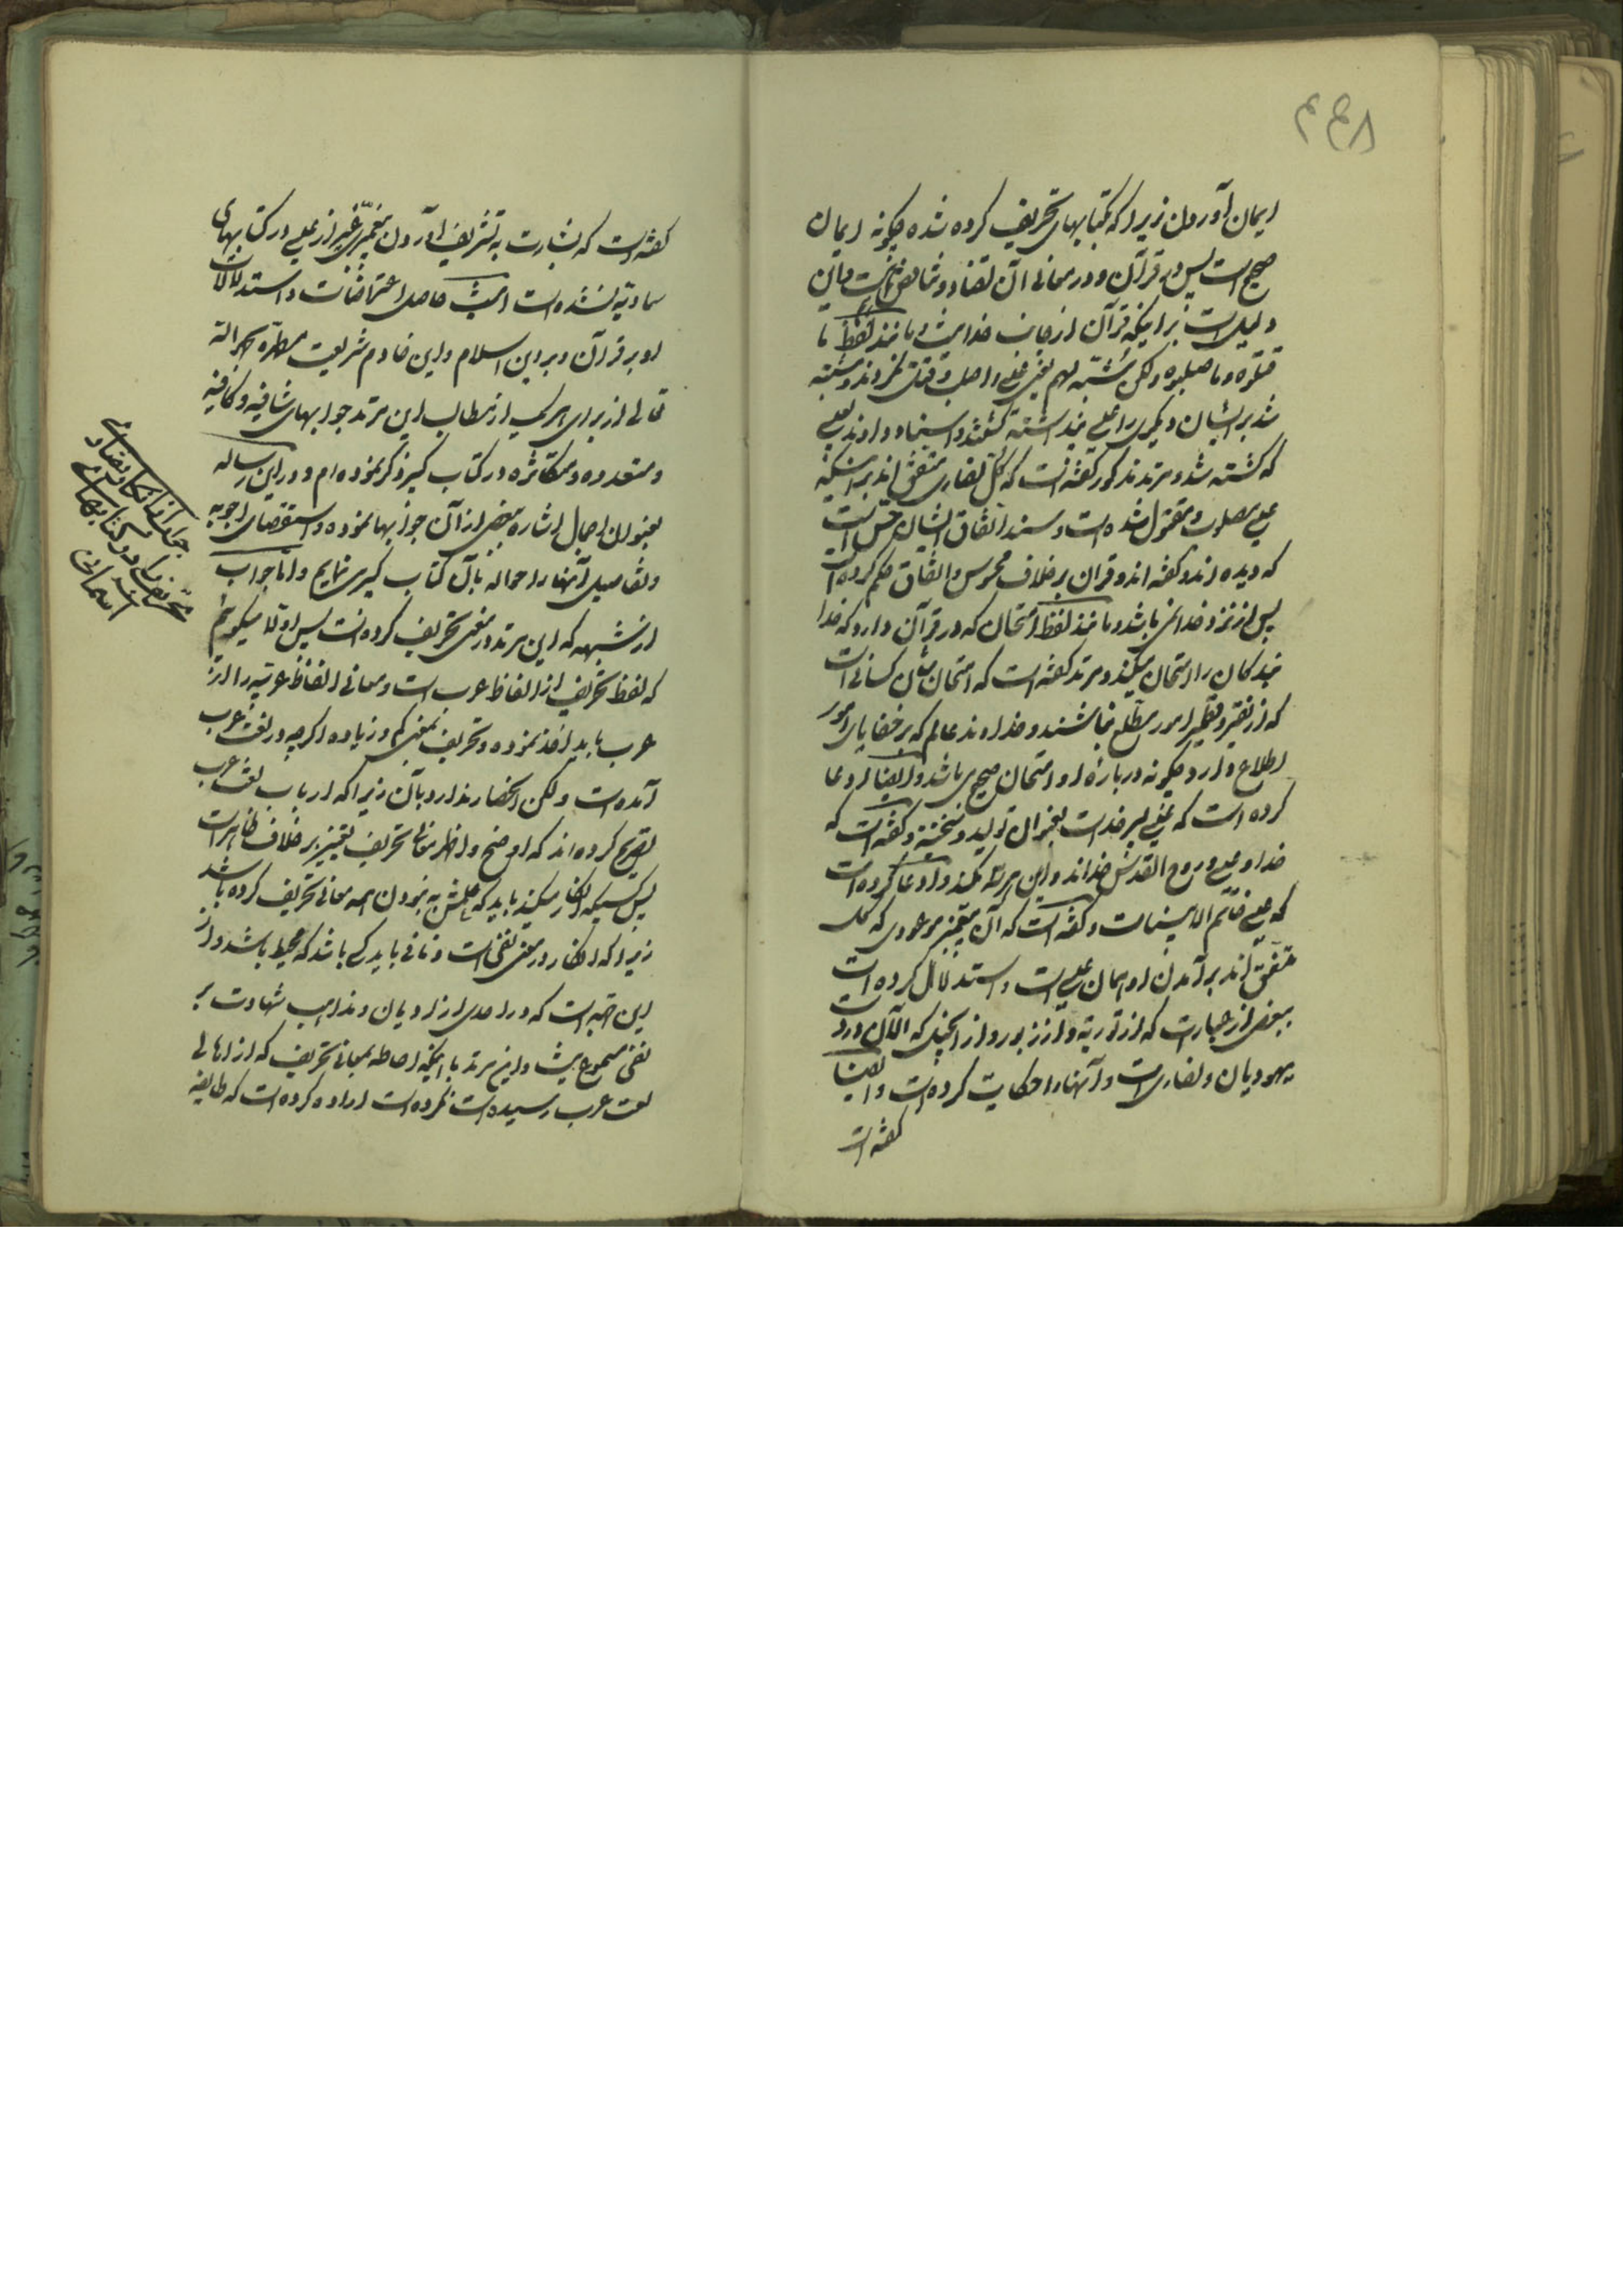 ایمان آوردن زیرا که کتابهای تحریف کرده شده چگونه ایمان
صحیح است پس در قرآن و در معانی آن تضاد و تناقض ثابت و این
دلیل است بر اینکه قرآن از جانب خدا نیست و مانند لفظ ما
قتلوه و ما صلبوه ولکن شبّه لهم یعنی عیسی را صلب و قتل نکردند و مشتبه
شد بر ایشان دیگری را عیسی پنداشته کشتند و اسناد دادند بعیسی
که کشته شد و مرتد مذکور گفته است که کل نصاری متفق اند بر اینکه
عیسی مصلوب و مقتول شده است و سند اتفاق ایشان حس است
که دیده اند و گفته اند و قرآن بر خلاف محسوس و اتفاق حکم کرده است
پس از نزد خدا نمی باشد و مانند لفظ امتحان که در قرآن دارد که خدا
بندگان را امتحان میکند و مرتد گفته است که امتحان شأن کسانی است
که از نقیر و قطمیر امور مطلع نباشند و خداوند عالم که بر خفایای امور
اطلاع دارد چگونه در بارهٔ او امتحان صحیح می باشد و ایضا ادعا
کرده است که عیسی پسر خداست بعنوان تولید و گفته است که
خدا و عیسی و روح القدس خدا اند و این هر سه یکند و ادعا کرده است
که عیسی خاتم الانبیاست و گفته است که آن پیغمبر موعودی که کل
متفق اند بر آمدن او همان عیسی است و استدلال کرده است
ببعض از عبارات که از توریة و از زبور و از انجیل که الآن در دست
یهودیان و نصاری است و آنها را حکایت کرده است و ایضا
گفته است
گفته است که بشارت به تشریف آوردن پیغمبری غیر از عیسی در کتابهای
سماویّه نشده است حاصل اعتراضات و استدلالات
او بر قرآن و بر دین اسلام و این خادم شریعت مطهّره بحمد الله
تعالی از برای هر یک از مطالب این مرتد جوابهای شافیه و کافیه
و متعدده و متکاثره در کتاب کبیر ذکر نموده ام و در این رساله
بعنوان اجمال اشاره ببعض از آن جوابها نموده و استقصای اجوبه
و تفاصیل آنها را حواله بآن کتاب کبیر می نمایم و اما جواب
از شبهه که این مرتد در معنی تحریف کرده است پس اولا میگویم
که لفظ تحریف از الفاظ عرب است و معانی الفاظ عربیه را از
عرب باید اخذ نموده و تحریف بمعنی کم و زیاده اگرچه در لغت عرب
آمده است ولکن انحصار ندارد بآن زیرا که ارباب لغت عرب
تصریح کرده اند که اوضح و اظهر معانی تحریف تغییر بر خلاف ظاهر است
پس کسیکه انکار میکند باید که علمش به نبودن همه معانی تحریف کرده باشد
زیرا که انکار در معنی نفی است و نافی باید کسی باشد که محیط باشد و از
این جهت است که در احدی از ادیان و مذاهب شهادت بر
نفی مسموع نیست و این مرتد با اینکه احاطه بمعانی تحریف که از اهالی
لغت عرب رسیده است نکرده است اراده کرده است که طایفه
جواب از انکار نصاری
تحریف را در کتابهای
آسمانی